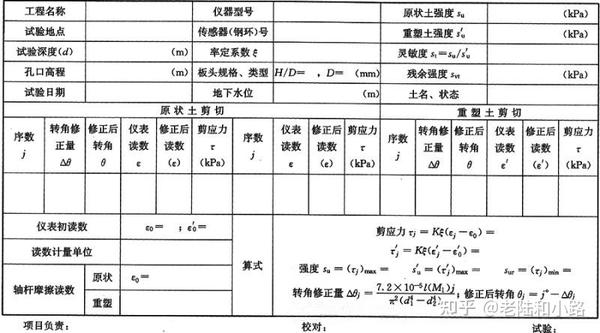 工程名称 仪器型号 原状土强度 sᵤ (kPa)
试验地点 传感器(钢环)号 重塑土强度 s′ᵤ (kPa)
试验深度(d) (m) 率定系数 ξ 灵敏度 sₜ=sᵤ/s′ᵤ
孔口高程 (m) 板头规格、类型 H/D= ，D= (mm) 残余强度 sᵥₜ (kPa)
试验日期 地下水位 (m) 土名、状态
原状土剪切 重塑土剪切
序数 j 转角修正量 Δθ 修正后转角 θ 仪表读数 ε 修正后读数 (ε) 剪应力 τ (kPa) 序数 j 仪表读数 ε 修正后读数 (ε) 剪应力 τ (kPa) 序数 j 转角修正量 Δθ 修正后转角 θ 仪表读数 ε′ 修正后读数 (ε′) 剪应力 τ (kPa)
仪表初读数 ε₀= ；ε′₀=
读数计量单位
轴杆摩擦读数 原状 ε₀=
重塑
算式
剪应力 τⱼ=Kξ(εⱼ-ε₀)=
τ′ⱼ=Kξ(ε′ⱼ-ε′₀)=
强度 sᵤ=(τⱼ)max= s′ᵤ=(τ′ⱼ)max= sur=(τⱼ)min=
转角修正量 Δθⱼ=7.2×10⁻⁵l(Mⱼ)j/π²(d₁⁴-d₂⁴)；修正后转角 θⱼ=j°-Δθⱼ
项目负责： 校对： 试验：
知乎 @老陆和小路